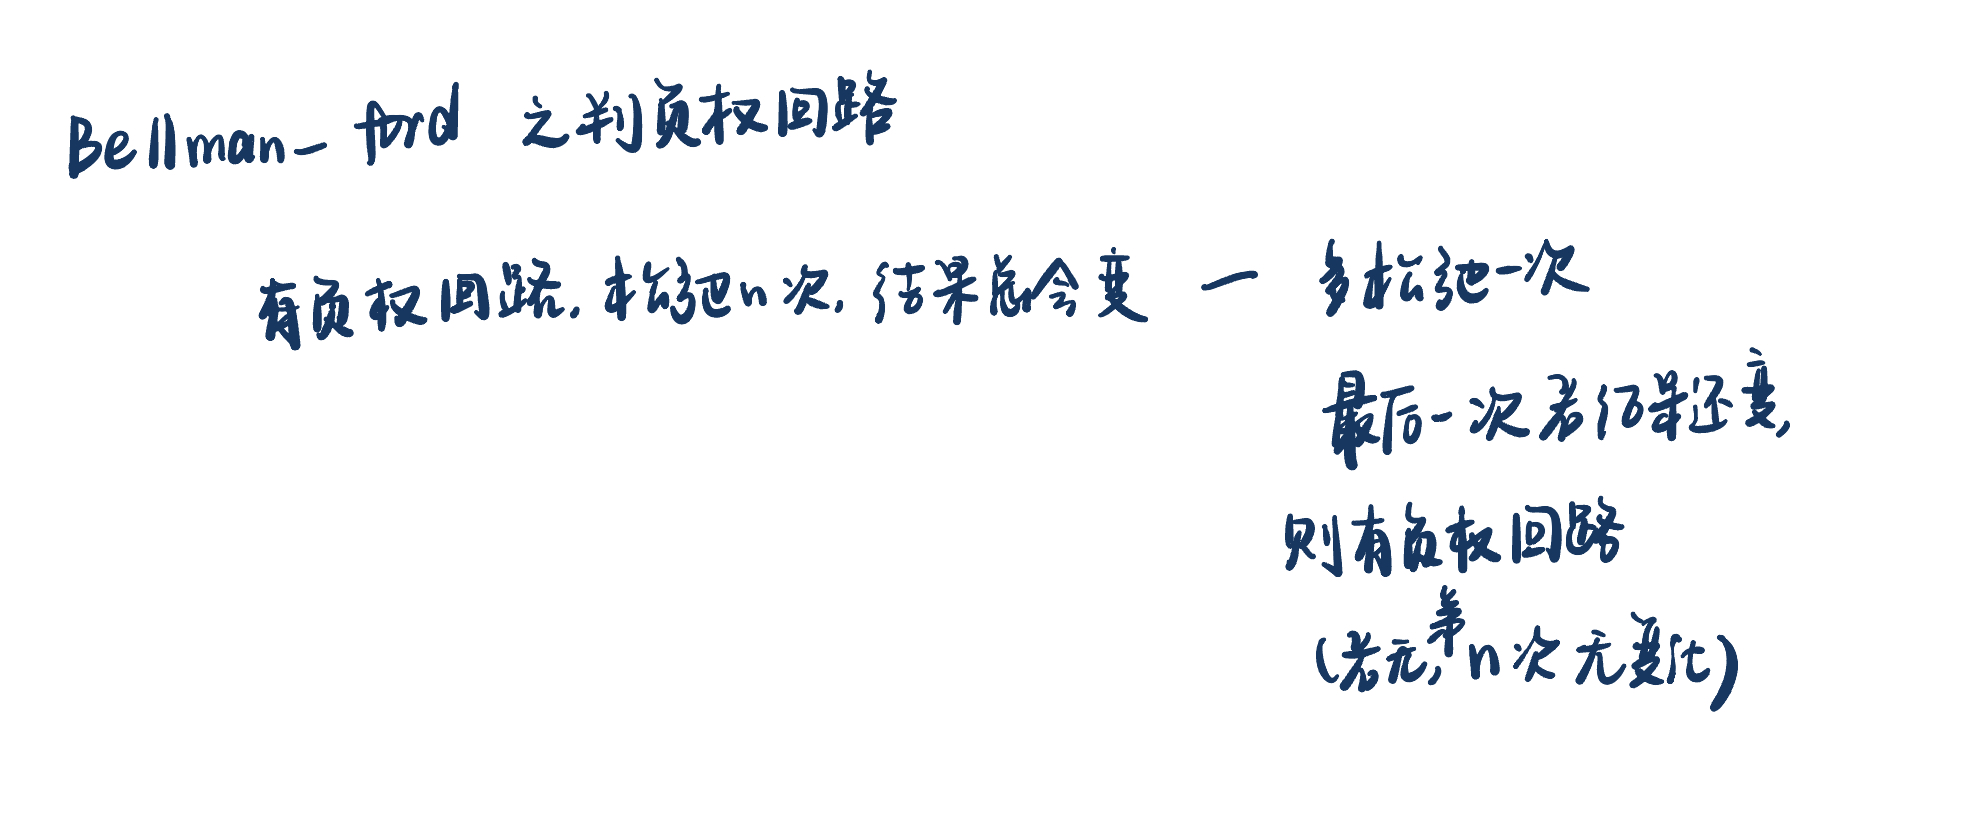 Bellman-ford 之判负权回路
有负权回路,松弛n次,结果总会变 — 多松弛一次
最后一次若结果还变,
则有负权回路
(若无,第n次无变化)